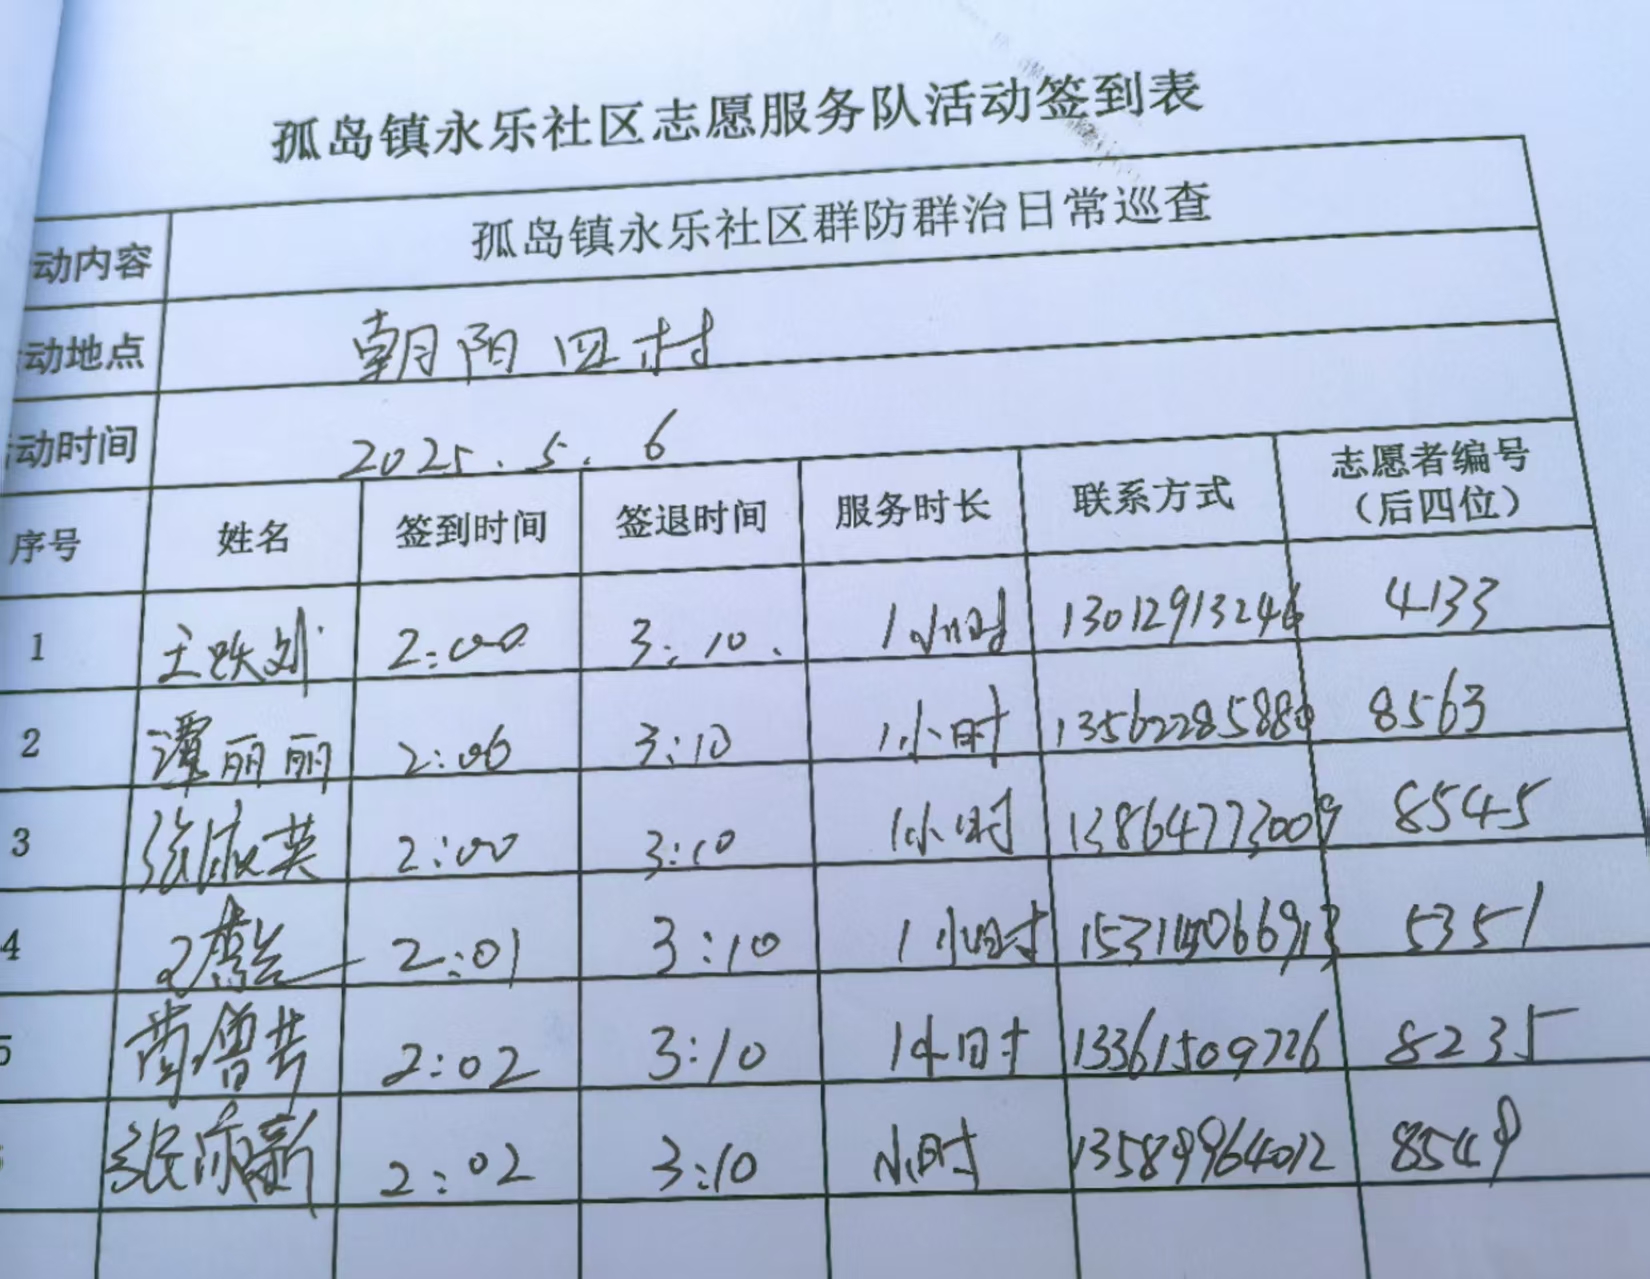 孤岛镇永乐社区志愿服务队活动签到表
动内容 孤岛镇永乐社区群防群治日常巡查
动地点 朝阳四村
动时间 2025.5.6
序号 姓名 签到时间 签退时间 服务时长 联系方式 志愿者编号
(后四位)
1 2:00 3:10. 1小时 13012913246 4133
2 谭丽丽 2:06 3:10 1小时 8563
3 2:00 3:10 1小时 13864773009 8545
4 2:01 3:10 1小时 5351
5 2:02 3:10 1小时 13361509726 8235
2:02 3:10 小时 13589964012 8549